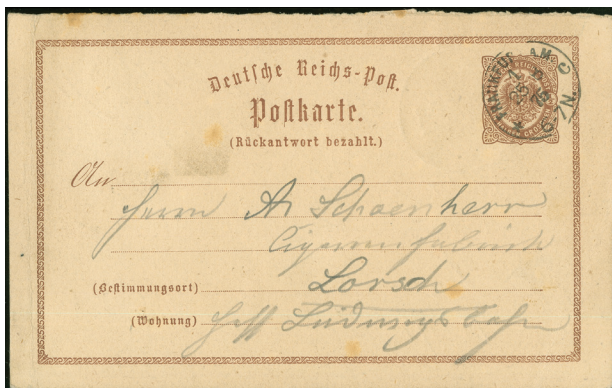 Deutsche Reichs-Post.
Postkarte.
(Rückantwort bezahlt.)
An
Herrn A. Schoenherr
Cigarrenfabrik
(Bestimmungsort) Lorsch
(Wohnung) Hess Ludwigs Bahn
FRANKFURT AM